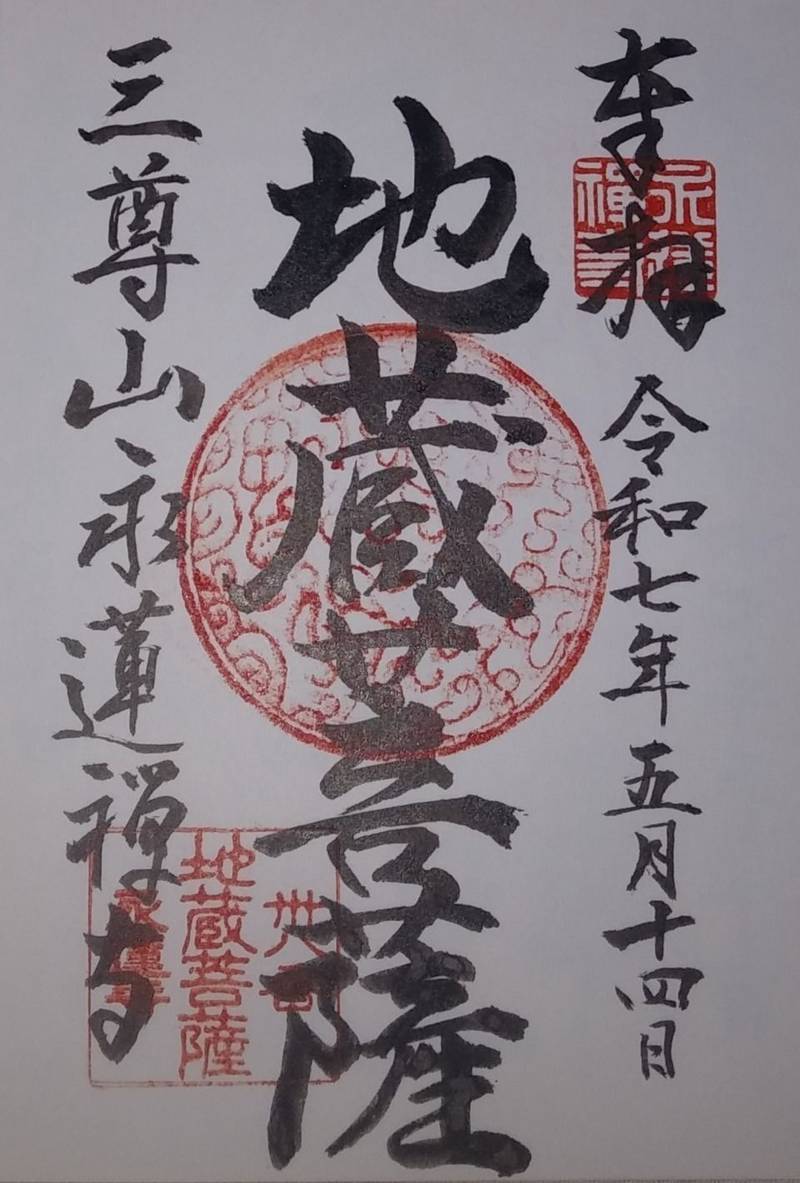 奉拝
令和七年五月十四日
地蔵菩薩
三尊山永蓮禅寺
地蔵菩薩